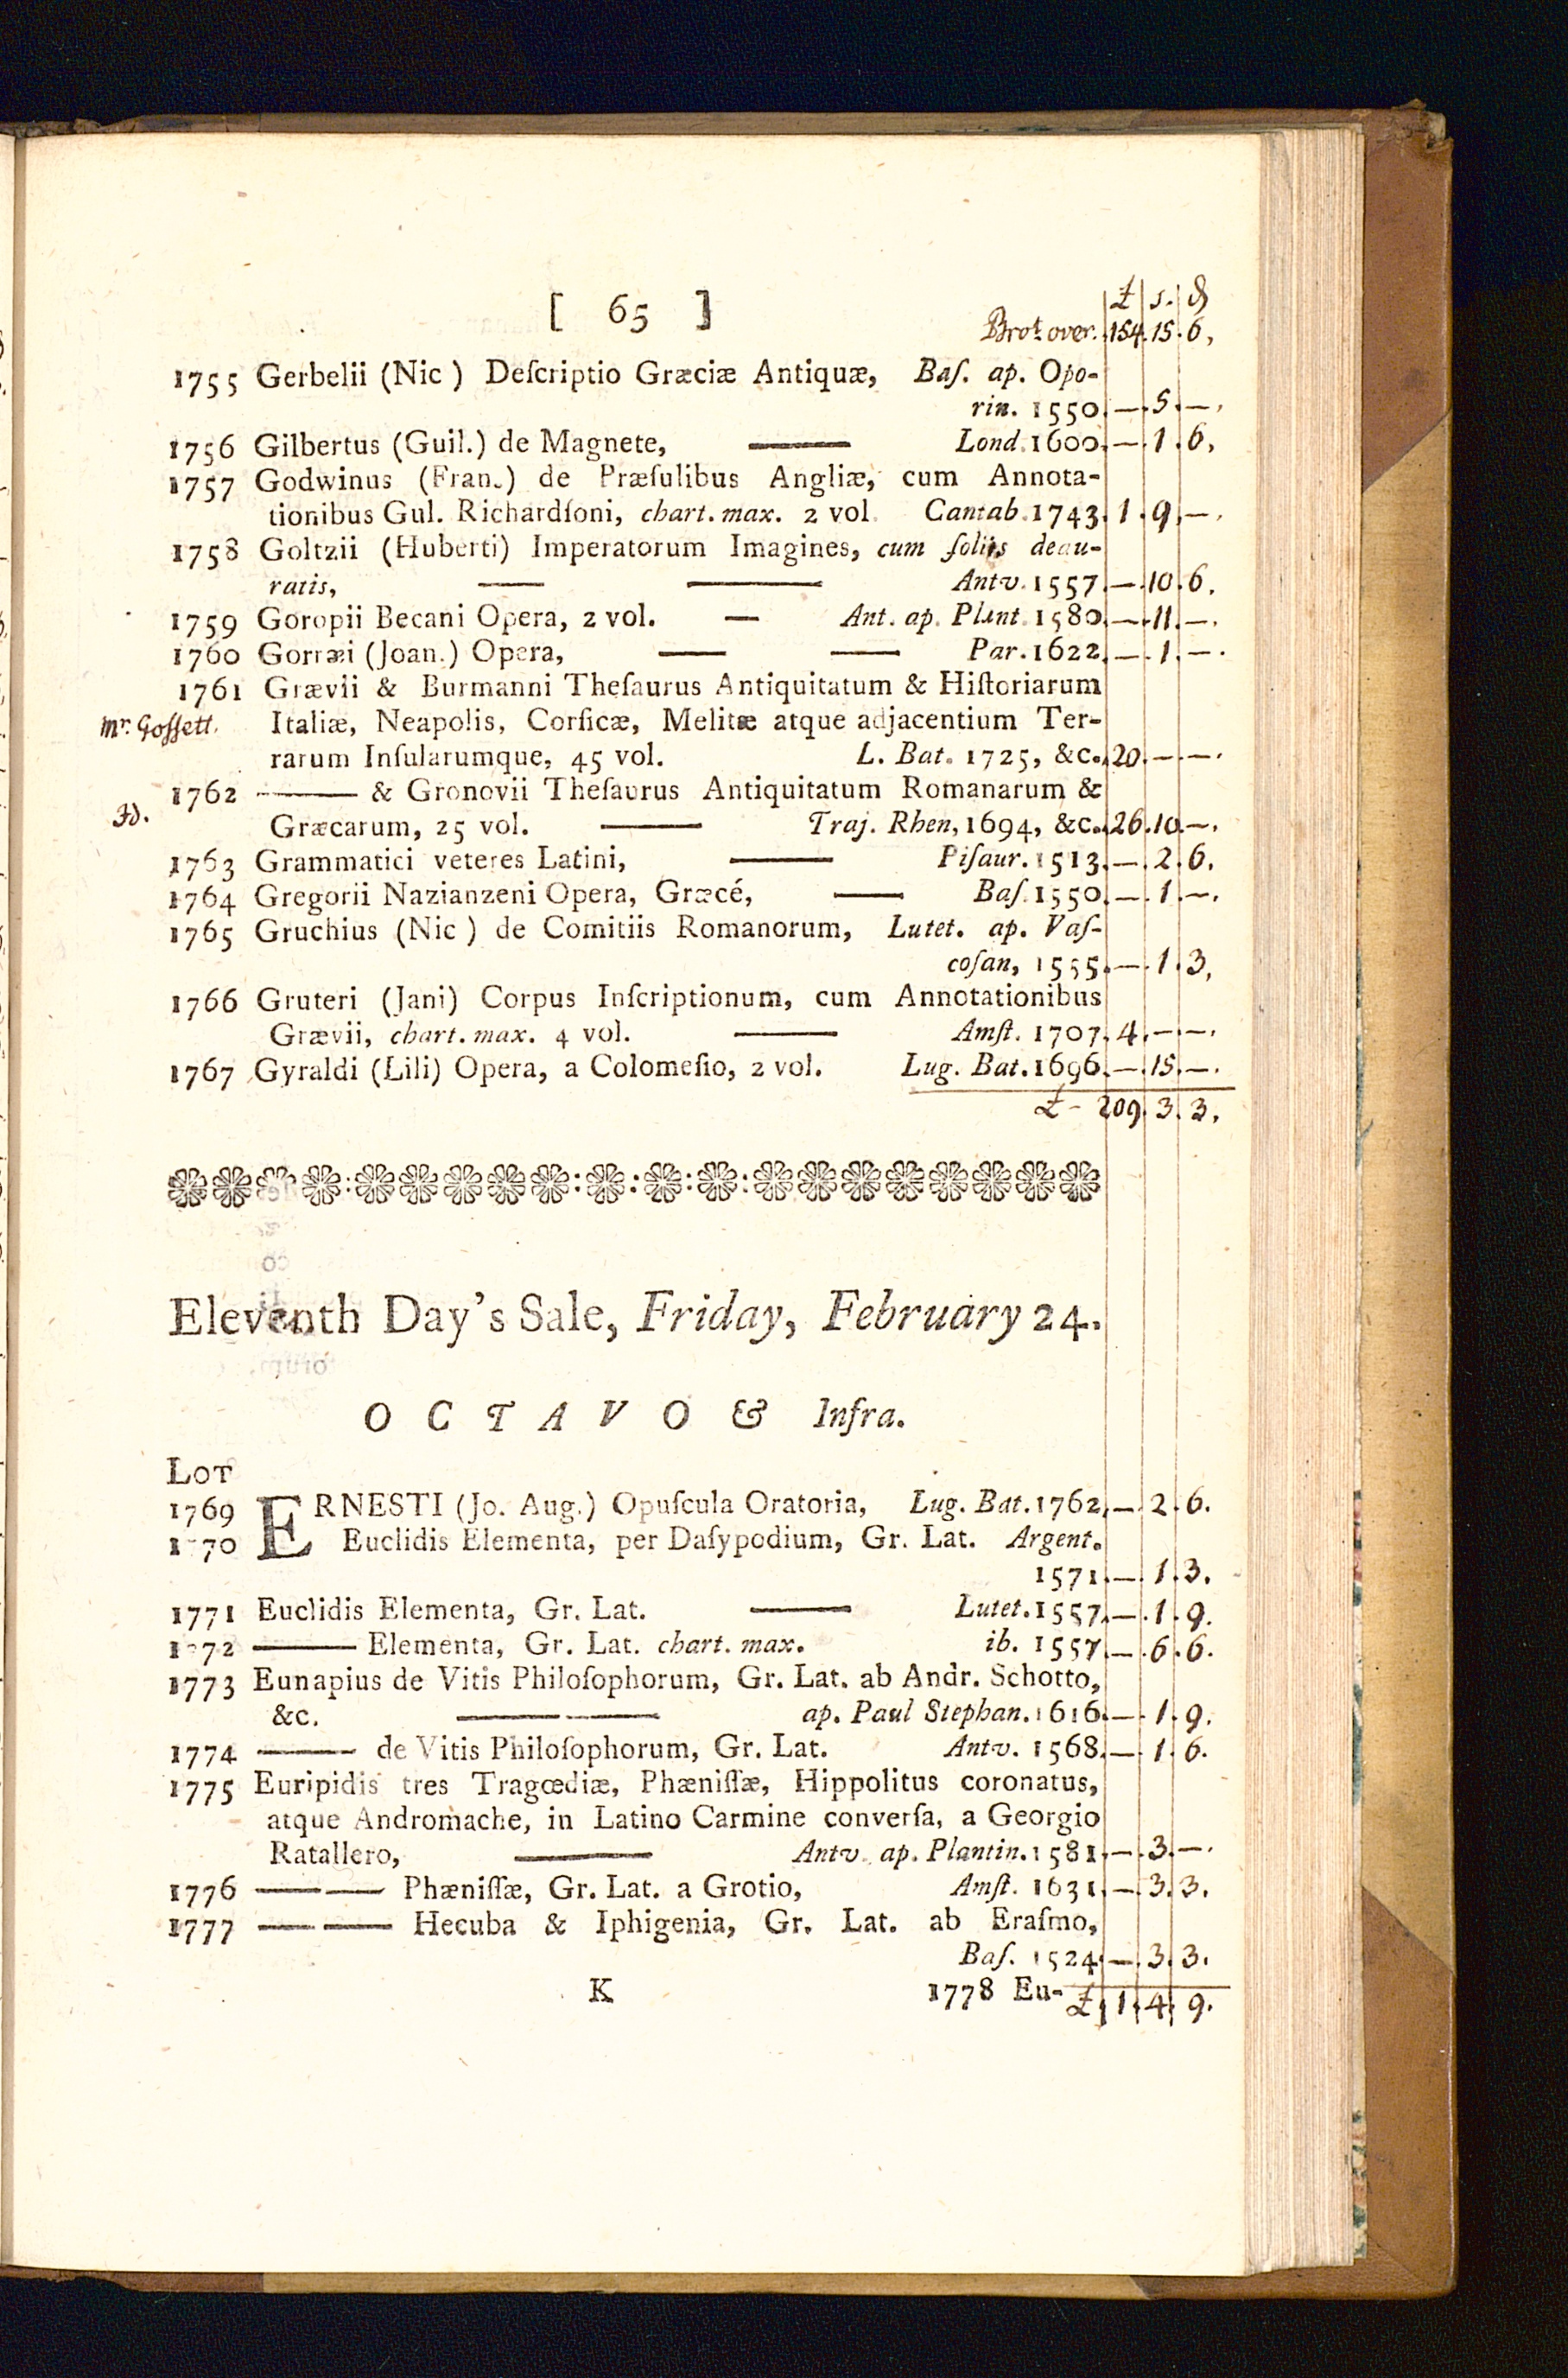 [ 65 ]
£ s. d
Brot over. 154. 15. 6,
1755 Gerbelii (Nic ) Deſcriptio Græciæ Antiquæ, Baſ. ap. Opo-
rin. 1550. —. 5. —.
1756 Gilbertus (Guil.) de Magnete, —— Lond. 1600. —. 1. 6,
1757 Godwinus (Fran.) de Præſulibus Angliæ, cum Annota-
tionibus Gul. Richardſoni, chart. max. 2 vol. Cantab. 1743. 1. 9. —.
1758 Goltzii (Huberti) Imperatorum Imagines, cum foliis deau-
ratis, —— —— Antv. 1557. —. 10. 6.
1759 Goropii Becani Opera, 2 vol. — Ant. ap. Plant. 1580. —. 11. —.
1760 Gorræi (Joan.) Opera, —— —— Par. 1622. —. 1. —.
1761 Grævii & Burmanni Theſaurus Antiquitatum & Hiſtoriarum
Mr. Gossett. Italiæ, Neapolis, Corſicæ, Melitæ atque adjacentium Ter-
rarum Inſularumque, 45 vol. L. Bat. 1725, &c. 20. —. —.
1762 —— & Gronovii Theſaurus Antiquitatum Romanarum &
Id. Græcarum, 25 vol. —— Traj. Rhen, 1694, &c. 26. 10. —.
1763 Grammatici veteres Latini, —— Piſaur. 1513. —. 2. 6.
1764 Gregorii Nazianzeni Opera, Græcé, —— Baſ. 1550. —. 1. —.
1765 Gruchius (Nic ) de Comitiis Romanorum, Lutet. ap. Vaſ-
coſan, 1555. —. 1. 3,
1766 Gruteri (Jani) Corpus Inſcriptionum, cum Annotationibus
Grævii, chart. max. 4 vol. —— Amſt. 1707. 4. —. —.
1767 Gyraldi (Lili) Opera, a Colomeſio, 2 vol. Lug. Bat. 1696. —. 15. —.
£ - 209. 3. 3.
Eleventh Day's Sale, Friday, February 24.
OCTAVO & Infra.
LOT
1769 ERNESTI (Jo. Aug.) Opuſcula Oratoria, Lug. Bat. 1762. —. 2. 6.
1770 Euclidis Elementa, per Daſypodium, Gr. Lat. Argent.
1571. —. 1. 3.
1771 Euclidis Elementa, Gr. Lat. —— Lutet. 1557. —. 1. 9.
1772 —— Elementa, Gr. Lat. chart. max. ib. 1557. —. 6. 6.
1773 Eunapius de Vitis Philoſophorum, Gr. Lat. ab Andr. Schotto,
&c. —— —— ap. Paul Stephan. 1616. —. 1. 9.
1774 —— de Vitis Philoſophorum, Gr. Lat. Antv. 1568. —. 1. 6.
1775 Euripidis tres Tragœdiæ, Phæniſſæ, Hippolitus coronatus,
atque Andromache, in Latino Carmine converſa, a Georgio
Ratallero, —— Antv. ap. Plantin. 1581. —. 3. —.
1776 —— —— Phæniſſæ, Gr. Lat. a Grotio, Amſt. 1631. —. 3. 3.
1777 —— —— Hecuba & Iphigenia, Gr. Lat. ab Eraſmo,
Baſ. 1524. —. 3. 3.
K 1778 Eu- £. 1. 4. 9.